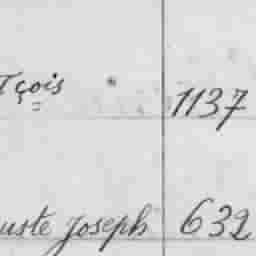 çois 1137
uste Joseph 632